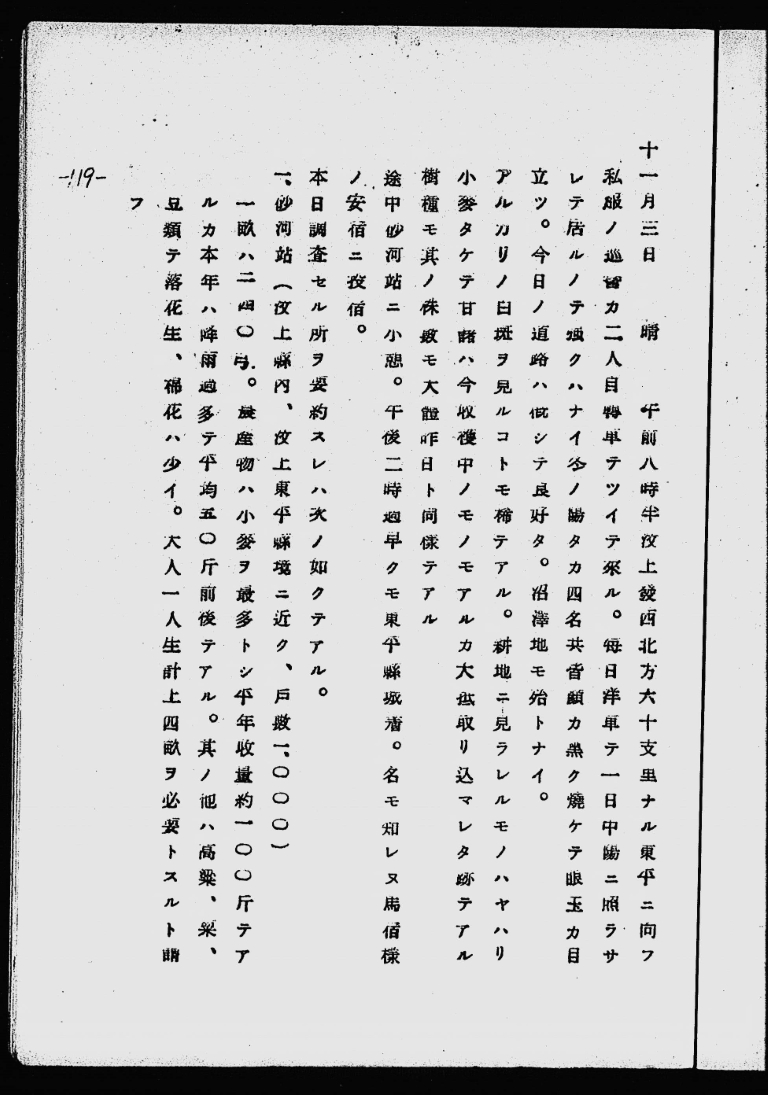 十一月三日　晴　午前八時半汶上發西北方六十支里ナル東平ニ向フ
私服ノ巡警カ二人自轉車テツイテ來ル。每日洋車テ一日中陽ニ照ラサ
レテ居ルノテ强クハナイ冬ノ陽タカ四名共皆顏カ黑ク燒ケテ眼玉カ目
立ツ。今日ノ道路ハ槪シテ良好タ。沼澤地モ殆トナイ。
アルカリノ白斑ヲ見ルコトモ稀テアル。耕地ニ見ラレルモノハヤハリ
小麥タケテ甘藷ハ今收穫中ノモノモアルカ大抵取リ込マレタ跡テアル
樹種モ其ノ株數モ大體昨日ト同樣テアル
途中砂河站ニ小憩。午後二時過早クモ東平縣城着。名モ知レヌ馬宿樣
ノ安宿ニ投宿。
本日調査セル所ヲ要約スレハ次ノ如クテアル。
一、砂河站（汶上縣內、汶上東平縣境ニ近ク、戶數一、〇〇〇）
一畝ハ二四〇弓。農產物ハ小麥ヲ最多トシ平年收量約一〇〇斤テア
ルカ本年ハ降雨過多テ平均五〇斤前後テアル。其ノ他ハ高粱、粟、
豆類テ落花生、棉花ハ少イ。大人一人生計上四畝ヲ必要トスルト謂
フ
-119-